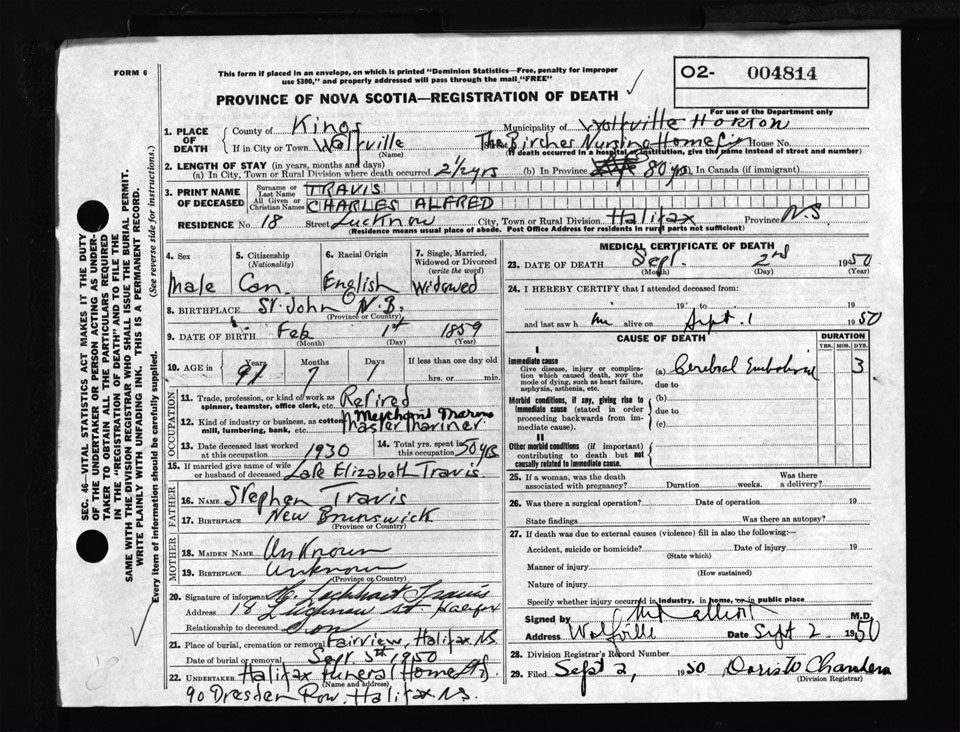 FORM 6
This form if placed in an envelope, on which is printed "Dominion Statistics—Free, penalty for improper
use $300," and properly addressed will pass through the mail "FREE"
O2- 004814
For use of the Department only
PROVINCE OF NOVA SCOTIA—REGISTRATION OF DEATH
1. PLACE OF DEATH { County of Kings Municipality of Wolfville HORTON
If in City or Town Wolfville (Name) The Birches Nursing Home House No.
(If death occurred in a hospital or institution, give the name instead of street and number)
2. LENGTH OF STAY (in years, months and days)
(a) In City, Town or Rural Division where death occurred 2 1/2 yrs (b) In Province 80 yrs In Canada (if immigrant)
3. PRINT NAME OF DECEASED { Surname or Last Name TRAVIS
All Given or Christian Names CHARLES ALFRED
RESIDENCE No. 18 Street Lucknow City, Town or Rural Division Halifax Province N.S
(Residence means usual place of abode. Post Office Address for residents in rural parts not sufficient)
SEC. 46—VITAL STATISTICS ACT MAKES IT THE DUTY
OF THE UNDERTAKER OR PERSON ACTING AS UNDER-
TAKER TO OBTAIN ALL THE PARTICULARS REQUIRED
IN THE "REGISTRATION OF DEATH" AND TO FILE THE
SAME WITH THE DIVISION REGISTRAR WHO SHALL ISSUE THE BURIAL PERMIT.
WRITE PLAINLY WITH UNFADING INK. THIS IS A PERMANENT RECORD.
Every item of information should be carefully supplied. (See reverse side for instructions.)
4. Sex
Male
5. Citizenship (Nationality)
Can.
6. Racial Origin
English
7. Single, Married, Widowed or Divorced (write the word)
Widowed
8. BIRTHPLACE St. John N.B.
(Province or Country)
9. DATE OF BIRTH Feb 1st 1859
(Month) (Day) (Year)
10. AGE in { Years Months Days If less than one day old
91 7 1 hrs. or min.
OCCUPATION
11. Trade, profession, or kind of work as spinner, teamster, office clerk, etc. Retired
12. Kind of industry or business, as cotton mill, lumbering, bank, etc. Merchant Marine
Master Mariner
13. Date deceased last worked at this occupation 1930
14. Total yrs. spent in this occupation 50 yrs
15. If married give name of wife or husband of deceased Late Elizabeth Travis
FATHER
16. NAME Stephen Travis
17. BIRTHPLACE New Brunswick
(Province or Country)
MOTHER
18. MAIDEN NAME Unknown
19. BIRTHPLACE Unknown
(Province or Country)
20. Signature of informant Lockhart Travis
Address 18 Lucknow St. Halifax
Relationship to deceased Son
21. Place of burial, cremation or removal Fairview, Halifax N.S.
Date of burial or removal Sept. 5th 1950
22. UNDERTAKER Halifax Funeral Home
(Name and address)
90 Dresden Row, Halifax N.S.
MEDICAL CERTIFICATE OF DEATH
23. DATE OF DEATH Sept. 2nd 1950
(Month) (Day) (Year)
24. I HEREBY CERTIFY that I attended deceased from:
19 to 19
and last saw h im alive on Sept. 1 1950
CAUSE OF DEATH DURATION
YRS. MOS. DYS.
I
Immediate cause
Give disease, injury or complica-
tion which caused death, NOT the
mode of dying, such as heart failure,
asphyxia, asthenia, etc.
(a) Cerebral Embolism 3
due to
Morbid conditions, if any, giving rise to
immediate cause (stated in order
proceeding backwards from im-
mediate cause).
(b)
due to
(c)
II
Other morbid conditions (if important)
contributing to death but not
causally related to immediate cause.
25. If a woman, was the death associated with pregnancy? Duration weeks. Was there a delivery?
26. Was there a surgical operation? Date of operation 19
State findings Was there an autopsy?
27. If death was due to external causes (violence) fill in also the following:—
Accident, suicide or homicide? Date of injury 19
(State which)
Manner of injury
(How sustained)
Nature of injury
Specify whether injury occurred in industry, in home, or in public place
Signed by Elliott M.D.
Address Wolfville Date Sept 2 1950
28. Division Registrar's Record Number
29. Filed Sept 2, 1950 Doris W Chambers
(Division Registrar)